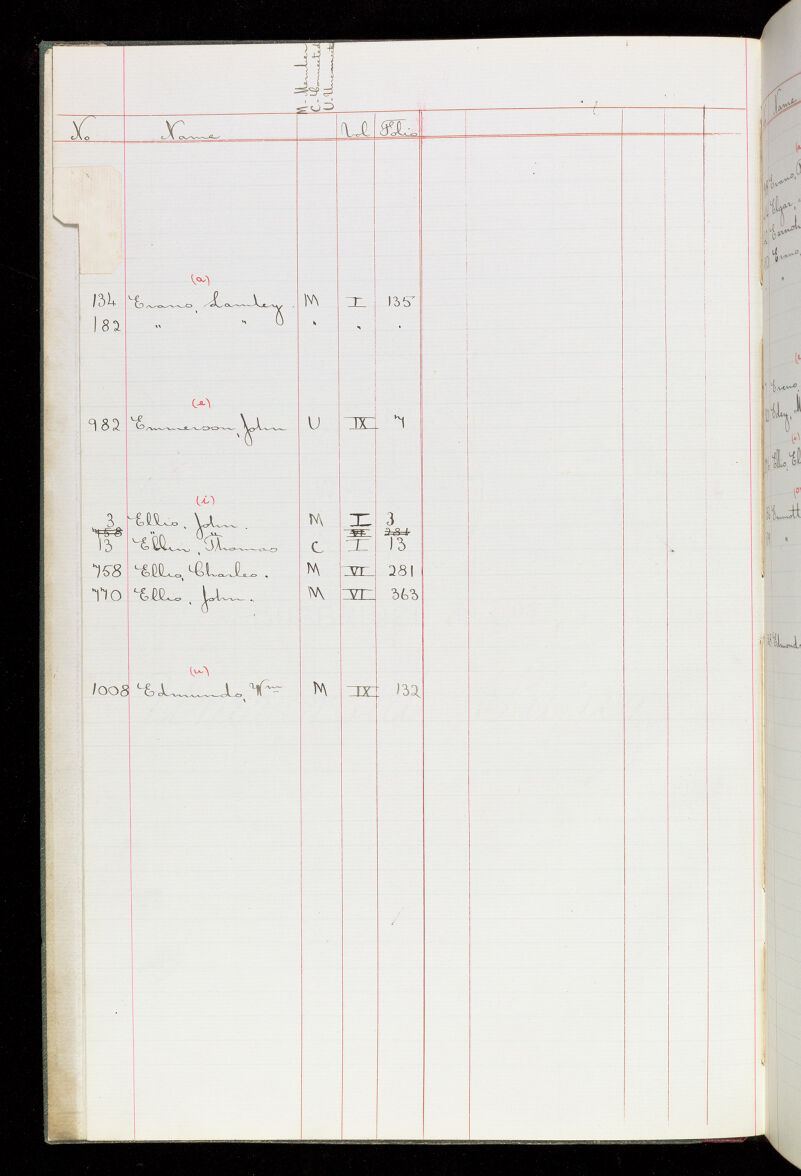 M. Member
C. Connected
U. Unconnect
No Name Vol Folio
(a)
134 Evans, Lamley. M I 135
182 " " " " "
(e)
982 Emmerson, John U IX 7
(i)
3 Ellis, John. M I 3
758 " " VI 281
13 Ellin, Thomas C I 13
758 Ellis, Charles. M VI 281
770 Ellis, John. M VI 363
(u)
1008 Edmunds, Wm M IX 132
Name
Evans,
Elgar,
Evans,
Eley, M
(o)
Ellis, El
Emmott
"
Edmonds